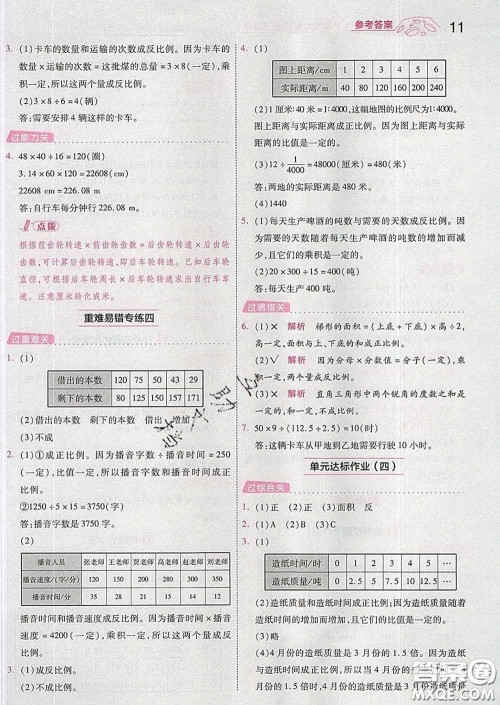 参考答案
11
3. (1)卡车的数量和运输的次数成反比例。因为卡车的
数量×运输的次数=这批煤的总量=3×8(一定),
积一定,所以这两个量成反比例。
(2)3×8÷6=4(辆)
答:需要安排4辆这样的卡车。
过能力关
4. 48×40÷16=120(圈)
3.14×60×120=22608(cm)
22608 cm=226.08 m
答:自行车每分钟行226.08 m。
点拨
根据前齿轮转速×前齿轮齿数=后齿轮转速×后齿轮
齿数,可计算后齿轮转速。已知后车轮直径,可求后车
轮周长。根据后车轮周长×后车轮转速求出自行车车
速。注意把厘米转化成米。
重难易错专练四
过重难关
1. (1)
借出的本数 120 75 50 43 29
剩下的本数 80 125 150 157 171
(2)借出的本数 剩下的本数 借出 增加
(3)不成
2. (1)①成正比例。因为播音字数÷播音时间=250
(一定),商一定,所以播音字数和播音时间成正
比例。
②1250÷5×15=3750(字)
答:播音字数是3750字。
(2)
播音人员 张老师 王老师 贾老师 高老师 夏老师
播音速度/(字/分) 120 150 200 210 280
播音时间/分 35 28 21 20 15
成反比例。因为播音时间×播音速度=播音字
数=4200(一定),乘积一定,所以播音时间和播音
速度成反比例。
3. (1)成反比例
(2)不成比例
4. (1)
图上距离/cm 1 2 3 4 5 6
实际距离/m 40 80 120 160 200 240
(2)1厘米:40米=1:4000,这幅地图的比例尺是
1:4000。图上距离与实际距离成正比例。因为图
上距离与实际距离的比值是一定的。
(3)12÷1/4000=48000(厘米)=480(米)
答:两地的实际距离是480米。
(4)1440
5. (1)每天生产啤酒的吨数与需要的天数成反比例。
因为需要的天数随着每天生产啤酒的吨数的增加而减
少,且每天生产啤酒的吨数与需要的天数的乘积是一
定的。
(2)20×300÷15=400(吨)
答:每天生产400吨。
过易错关
6. (1)× 解析 梯形的面积=(上底+下底)×高÷2,
高一定,面积与上、下底的和成正比例。
(2)√ 解析 因为分子÷分母=分数值(一定),商
一定,所以分子和分母成正比例。
(3)× 解析 直角三角形中两个锐角的度数之和是
一定的,不是乘积一定,所以不成反比例。
7. 50×9÷(112.5÷2.5)=10(时)
答:这辆汽车从甲地到乙地需要行驶10小时。
单元达标作业(四)
过综合关
1. (1)正 (2)正 面积 (3)反
2. (1)
造纸时间/时 1 2 3 4 5 6
造纸质量/吨 2 4 6 8 10 12
(2)造纸质量和造纸时间成正比例。因为造纸质量随
造纸时间的增加而增加,且造纸质量与造纸时间的比
值是一定的。
(3)略
(4)4月份的造纸质量是3月份的1.5倍。因为造纸
质量与造纸时间成正比例,所以当4月份的造纸时间
是3月份的1.5倍时,4月份的造纸质量也是3月份
答案圈
MXQE.COM